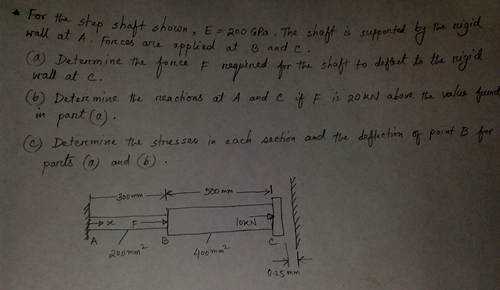 * For the step shaft shown, E = 200 GPa. The shaft is supported by the rigid
wall at A. Forces are applied at B and C.
(a) Determine the force F required for the shaft to deflect to the rigid
wall at C.
(b) Determine the reactions at A and C if F is 20 KN above the value found
in part (a).
(c) Determine the stresses in each section and the deflection of point B for
parts (a) and (b).
300mm
500 mm
x
F
10KN
A
B
C
200mm²
400mm²
0.25 mm